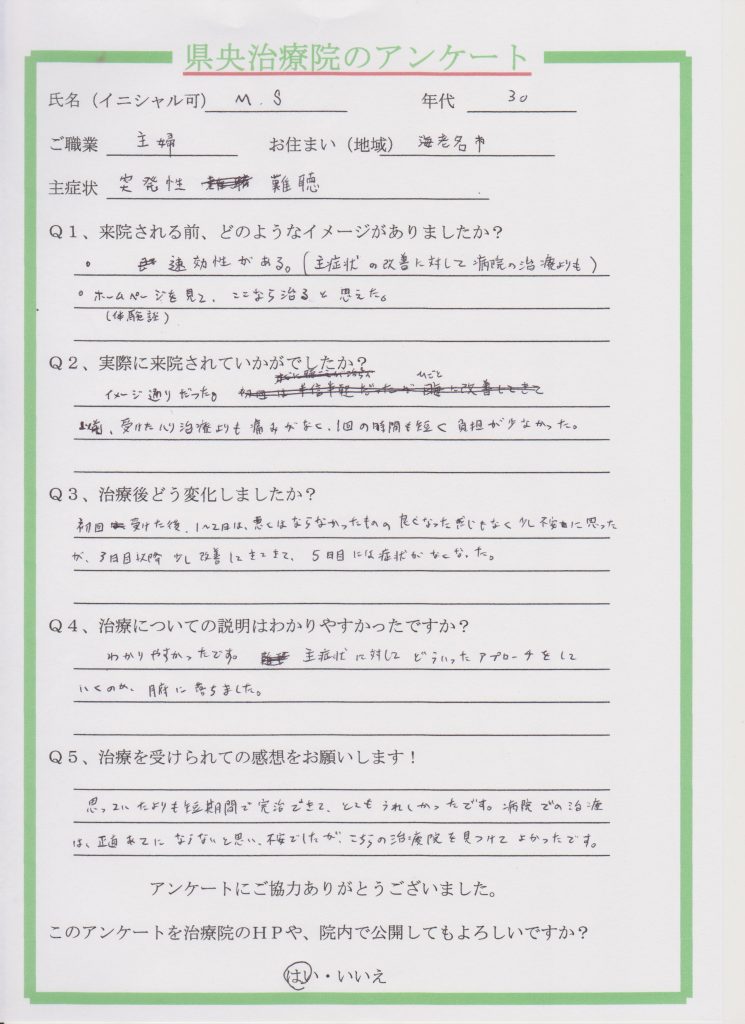 県央治療院のアンケート
氏名（イニシャル可） M.S 年代 30
ご職業 主婦 お住まい（地域） 海老名市
主症状 突発性 難聴
Ｑ１、来院される前、どのようなイメージがありましたか？
。 速効性がある。(主症状の改善に対して病院の治療よりも)
。ホームページを見て、ここなら治ると思えた。
(体験談)
Ｑ２、実際に来院されていかがでしたか？
イメージ通りだった。
以前、受けたハリ治療よりも痛みがなく、1回の時間も短く負担が少なかった。
Ｑ３、治療後どう変化しましたか？
初回 受けた後、1〜2日は、悪くはならなかったものの良くなった感じもなく少し不安に思った
が、3日目以降少し改善してきてきて、5日目には症状がなくなった。
Ｑ４、治療についての説明はわかりやすかったですか？
わかりやすかったです。 主症状に対してどういったアプローチをして
いくのか、腑に落ちました。
Ｑ５、治療を受けられての感想をお願いします！
思っていたよりも短期間で完治できて、とてもうれしかったです。病院での治療
は、正直あてにならないと思い、不安でしたが、こちらの治療院を見つけてよかったです。
アンケートにご協力ありがとうございました。
このアンケートを治療院のＨＰや、院内で公開してもよろしいですか？
はい・いいえ